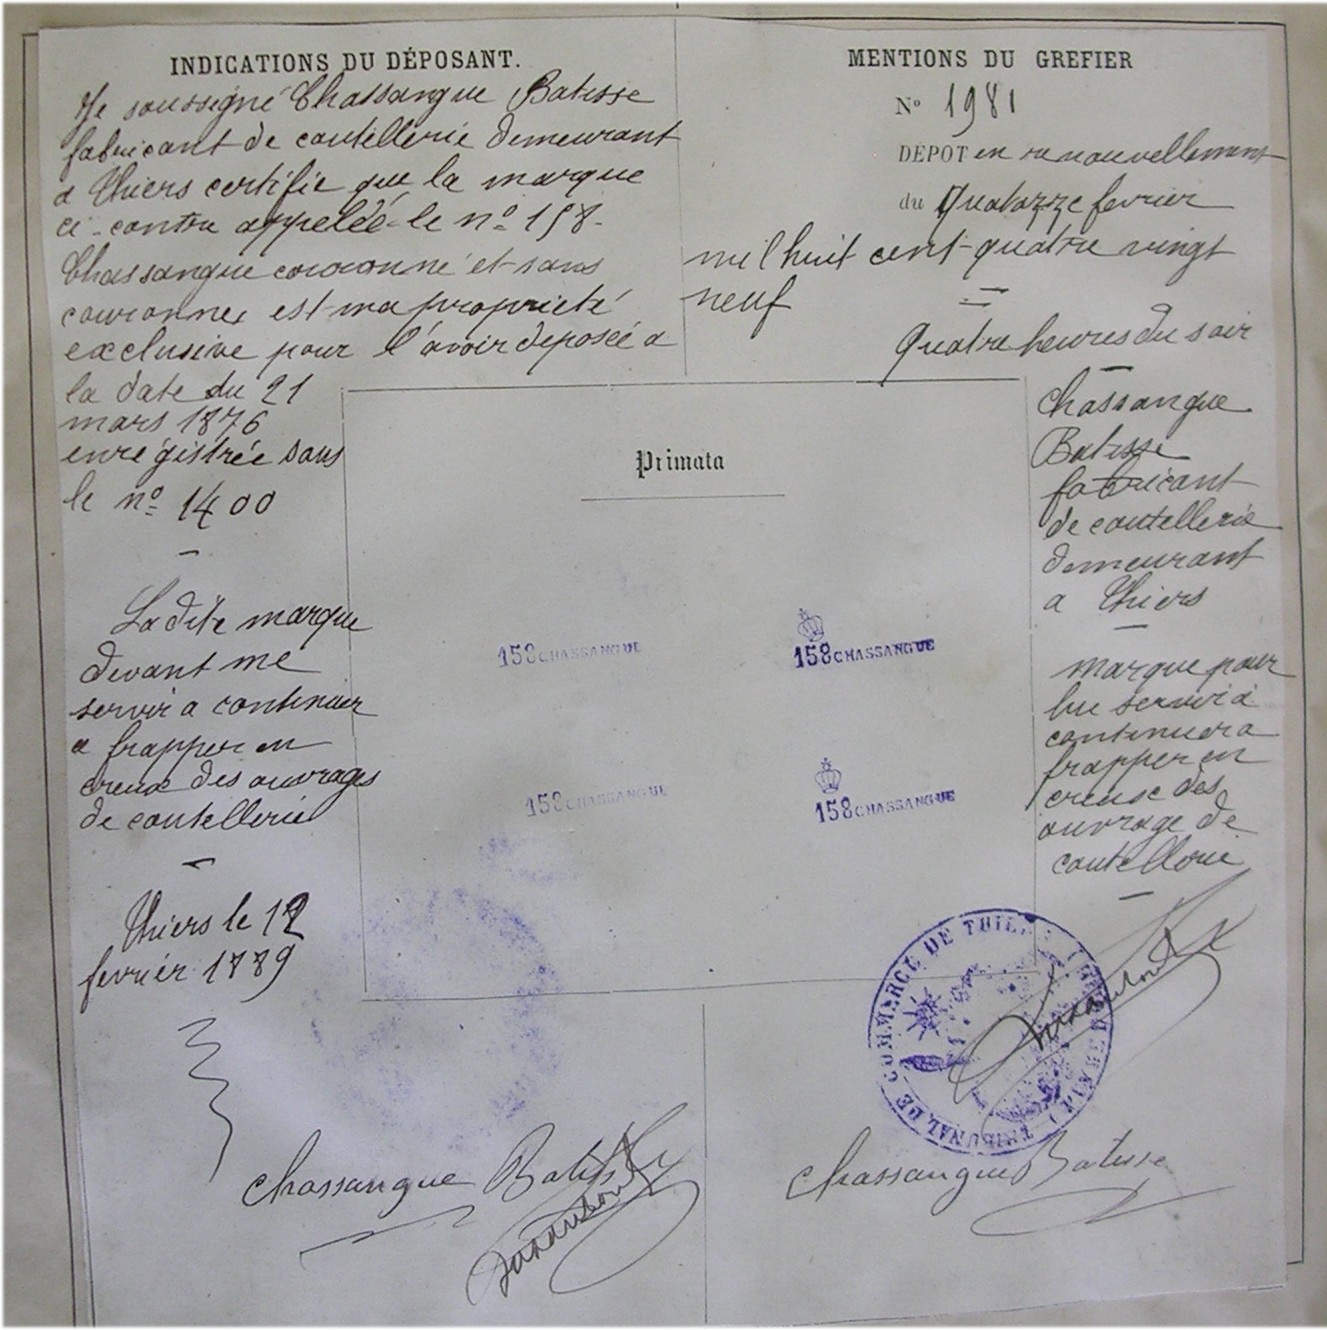 INDICATIONS DU DÉPOSANT.
Je soussigné Chassangue Batisse
fabricant de coutellerie demeurant
a Thiers certifie que la marque
ci-contre appelée le nº 158
Chassangue couronné et sans
couronne est ma proprieté
exclusive pour l'avoir deposée a
la date du 21
mars 1876
enregistrée sous
le nº 1400
La dite marque
devant me
servir a continuer
a frapper en
creux des ouvrages
de coutellerie
Thiers le 12
fevrier 1889
Chassangue Batisse
MENTIONS DU GREFIER
Nº 1981
DÉPOT en renouvellement
du Quatorze fevrier
mil huit cent quatre vingt
neuf
Quatre heures du soir
Chassangue
Batisse
fabricant
de coutellerie
demeurant
a Thiers
marque pour
lui servir à
continuer a
frapper en
creuse des
ouvrage de
coutellerie
Primata
158 CHASSANGUE
158 CHASSANGUE
158 CHASSANGUE
158 CHASSANGUE
TRIBUNAL DE COMMARCE DE THIERS
Chassangue Batisse